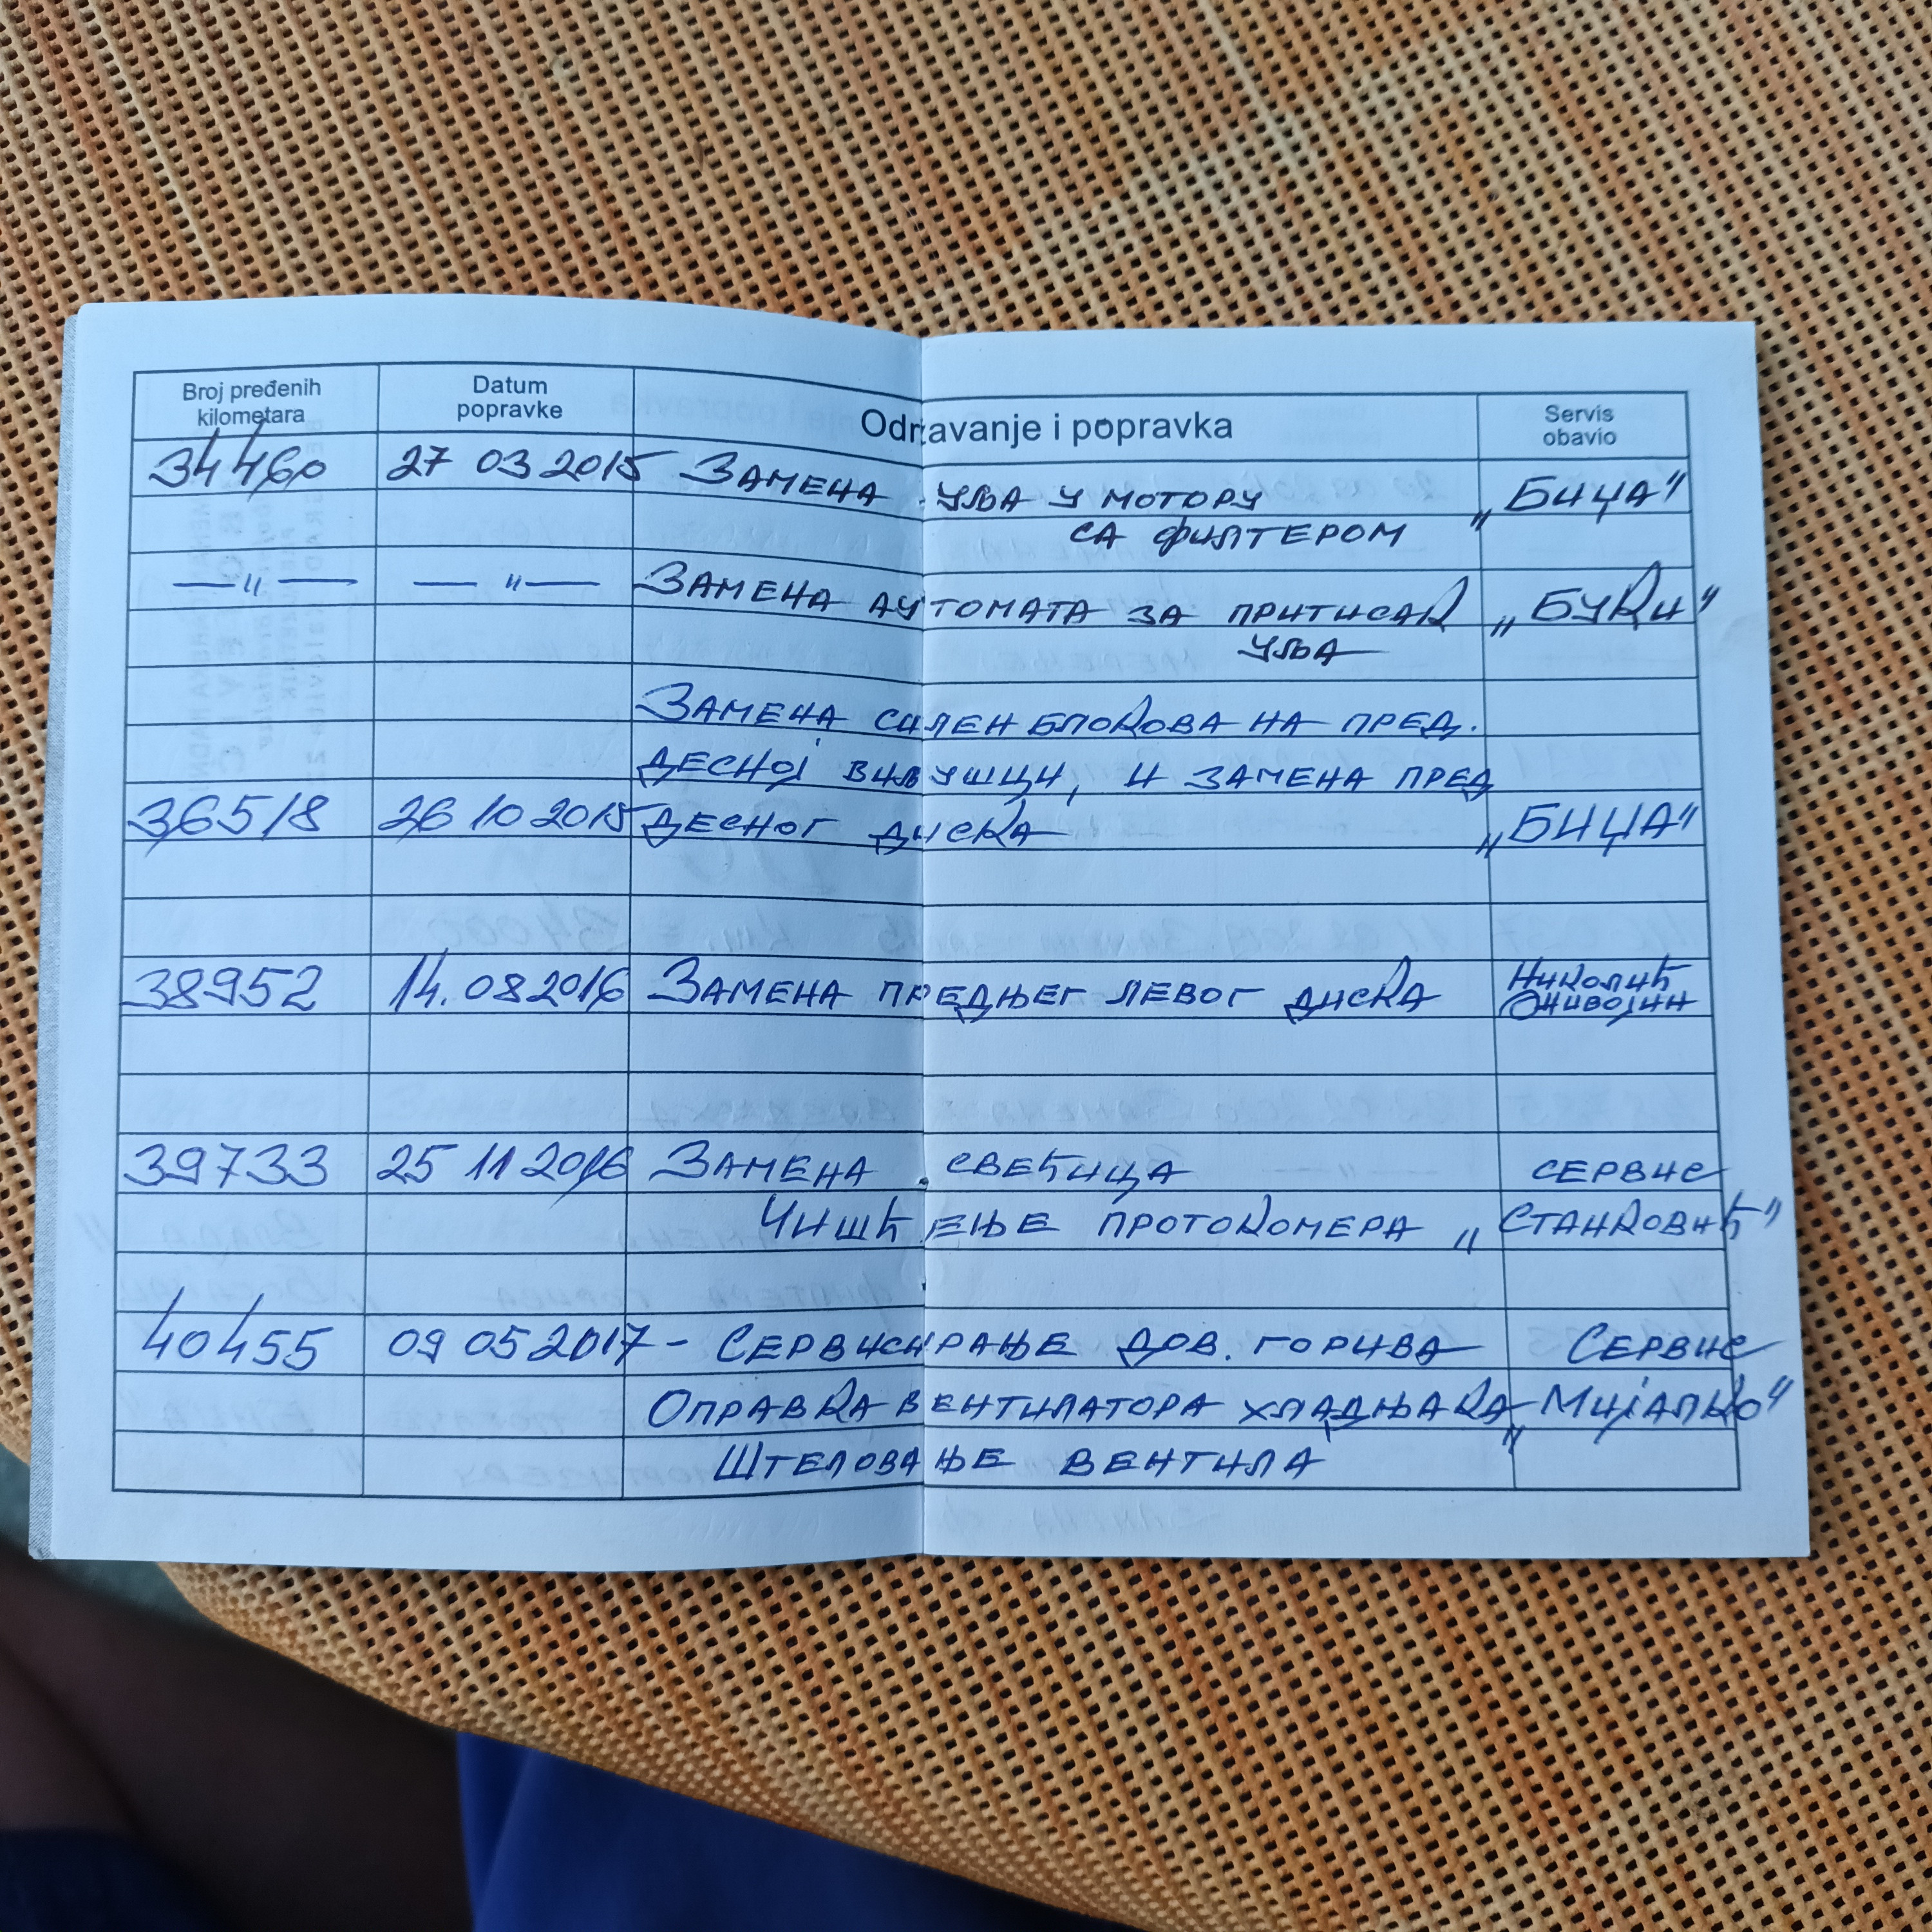 Broj pređenih kilometara Datum popravke Održavanje i popravka Servis obavio
34460 27 03 2015 Замена уља у мотору „Бица"
са филтером
—〃— —〃— Замена аутомата за притисак „Буки"
уља
Замена силен блокова на пред.
десној виљушци, и замена пред
36518 26 10 2015 десног диска „Бица"
38952 14.08 2016 Замена предњег левог диска Николић
Живојин
39733 25 11 2016 Замена свећица сервис
Чишћење протокомера „Станковић"
40455 09 05 2017 - Сервисирање дов. горива Сервис
Оправка вентилатора хладњака „Мијалко"
Штеловање вентила